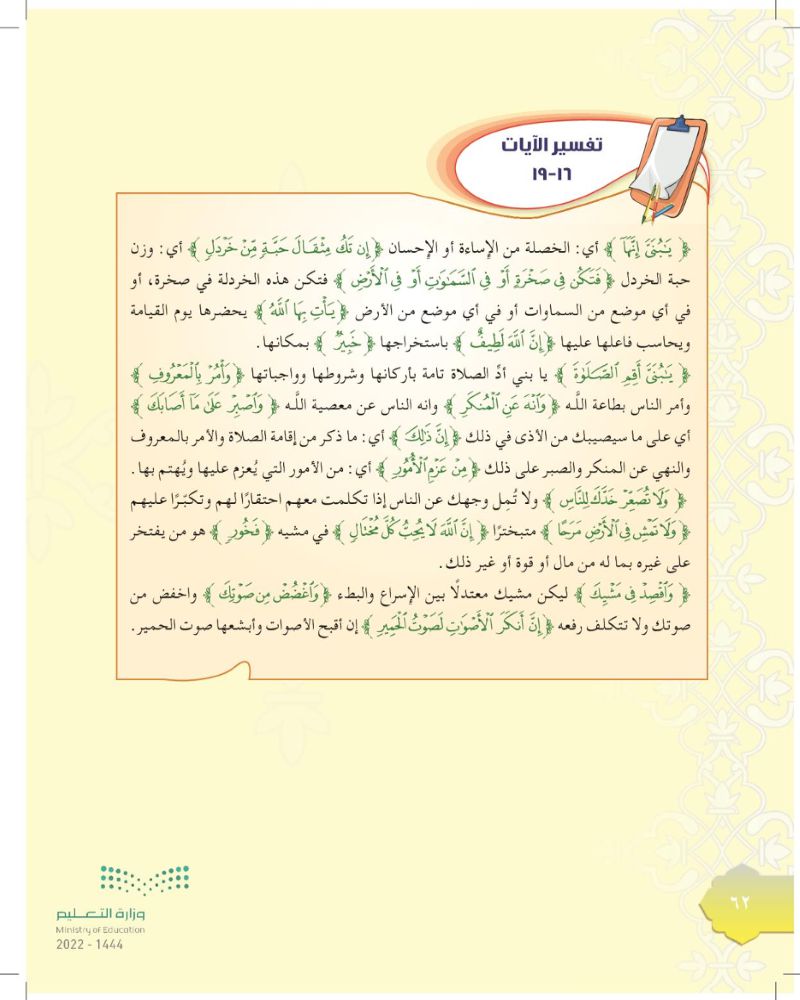 تفسير الآيات
١٦-١٩
﴿ يَـٰبُنَىَّ إِنَّهَآ ﴾ أي: الخصلة من الإساءة أو الإحسان ﴿ إِن تَكُ مِثْقَالَ حَبَّةٍ مِّنْ خَرْدَلٍ ﴾ أي: وزن
حبة الخردل ﴿ فَتَكُن فِى صَخْرَةٍ أَوْ فِى ٱلسَّمَـٰوَٰتِ أَوْ فِى ٱلْأَرْضِ ﴾ فتكن هذه الخردلة في صخرة، أو
في أي موضع من السماوات أو في أي موضع من الأرض ﴿ يَأْتِ بِهَا ٱللَّهُ ﴾ يحضرها يوم القيامة
ويحاسب فاعلها عليها ﴿ إِنَّ ٱللَّهَ لَطِيفٌ ﴾ باستخراجها ﴿ خَبِيرٌ ﴾ بمكانها.
﴿ يَـٰبُنَىَّ أَقِمِ ٱلصَّلَوٰةَ ﴾ يا بني أدِّ الصلاة تامة بأركانها وشروطها وواجباتها ﴿ وَأْمُرْ بِٱلْمَعْرُوفِ ﴾
وأمر الناس بطاعة اللـه ﴿ وَٱنْهَ عَنِ ٱلْمُنكَرِ ﴾ وانه الناس عن معصية اللـه ﴿ وَٱصْبِرْ عَلَىٰ مَآ أَصَابَكَ ﴾
أي على ما سيصيبك من الأذى في ذلك ﴿ إِنَّ ذَٰلِكَ ﴾ أي: ما ذكر من إقامة الصلاة والأمر بالمعروف
والنهي عن المنكر والصبر على ذلك ﴿ مِنْ عَزْمِ ٱلْأُمُورِ ﴾ أي: من الأمور التي يُعزم عليها ويُهتم بها.
﴿ وَلَا تُصَعِّرْ خَدَّكَ لِلنَّاسِ ﴾ ولا تُمِل وجهك عن الناس إذا تكلمت معهم احتقارًا لهم وتكبـرًا عليهم
﴿ وَلَا تَمْشِ فِى ٱلْأَرْضِ مَرَحًا ﴾ متبخترًا ﴿ إِنَّ ٱللَّهَ لَا يُحِبُّ كُلَّ مُخْتَالٍ ﴾ في مشيه ﴿ فَخُورٍ ﴾ هو من يفتخر
على غيره بما له من مال أو قوة أو غير ذلك.
﴿ وَٱقْصِدْ فِى مَشْيِكَ ﴾ ليكن مشيك معتدلًا بين الإسراع والبطء ﴿ وَٱغْضُضْ مِن صَوْتِكَ ﴾ واخفض من
صوتك ولا تتكلف رفعه ﴿ إِنَّ أَنكَرَ ٱلْأَصْوَٰتِ لَصَوْتُ ٱلْحَمِيرِ ﴾ إن أقبح الأصوات وأبشعها صوت الحمير.
٦٢
وزارة التعـليم
Ministry of Education
2022 - 1444